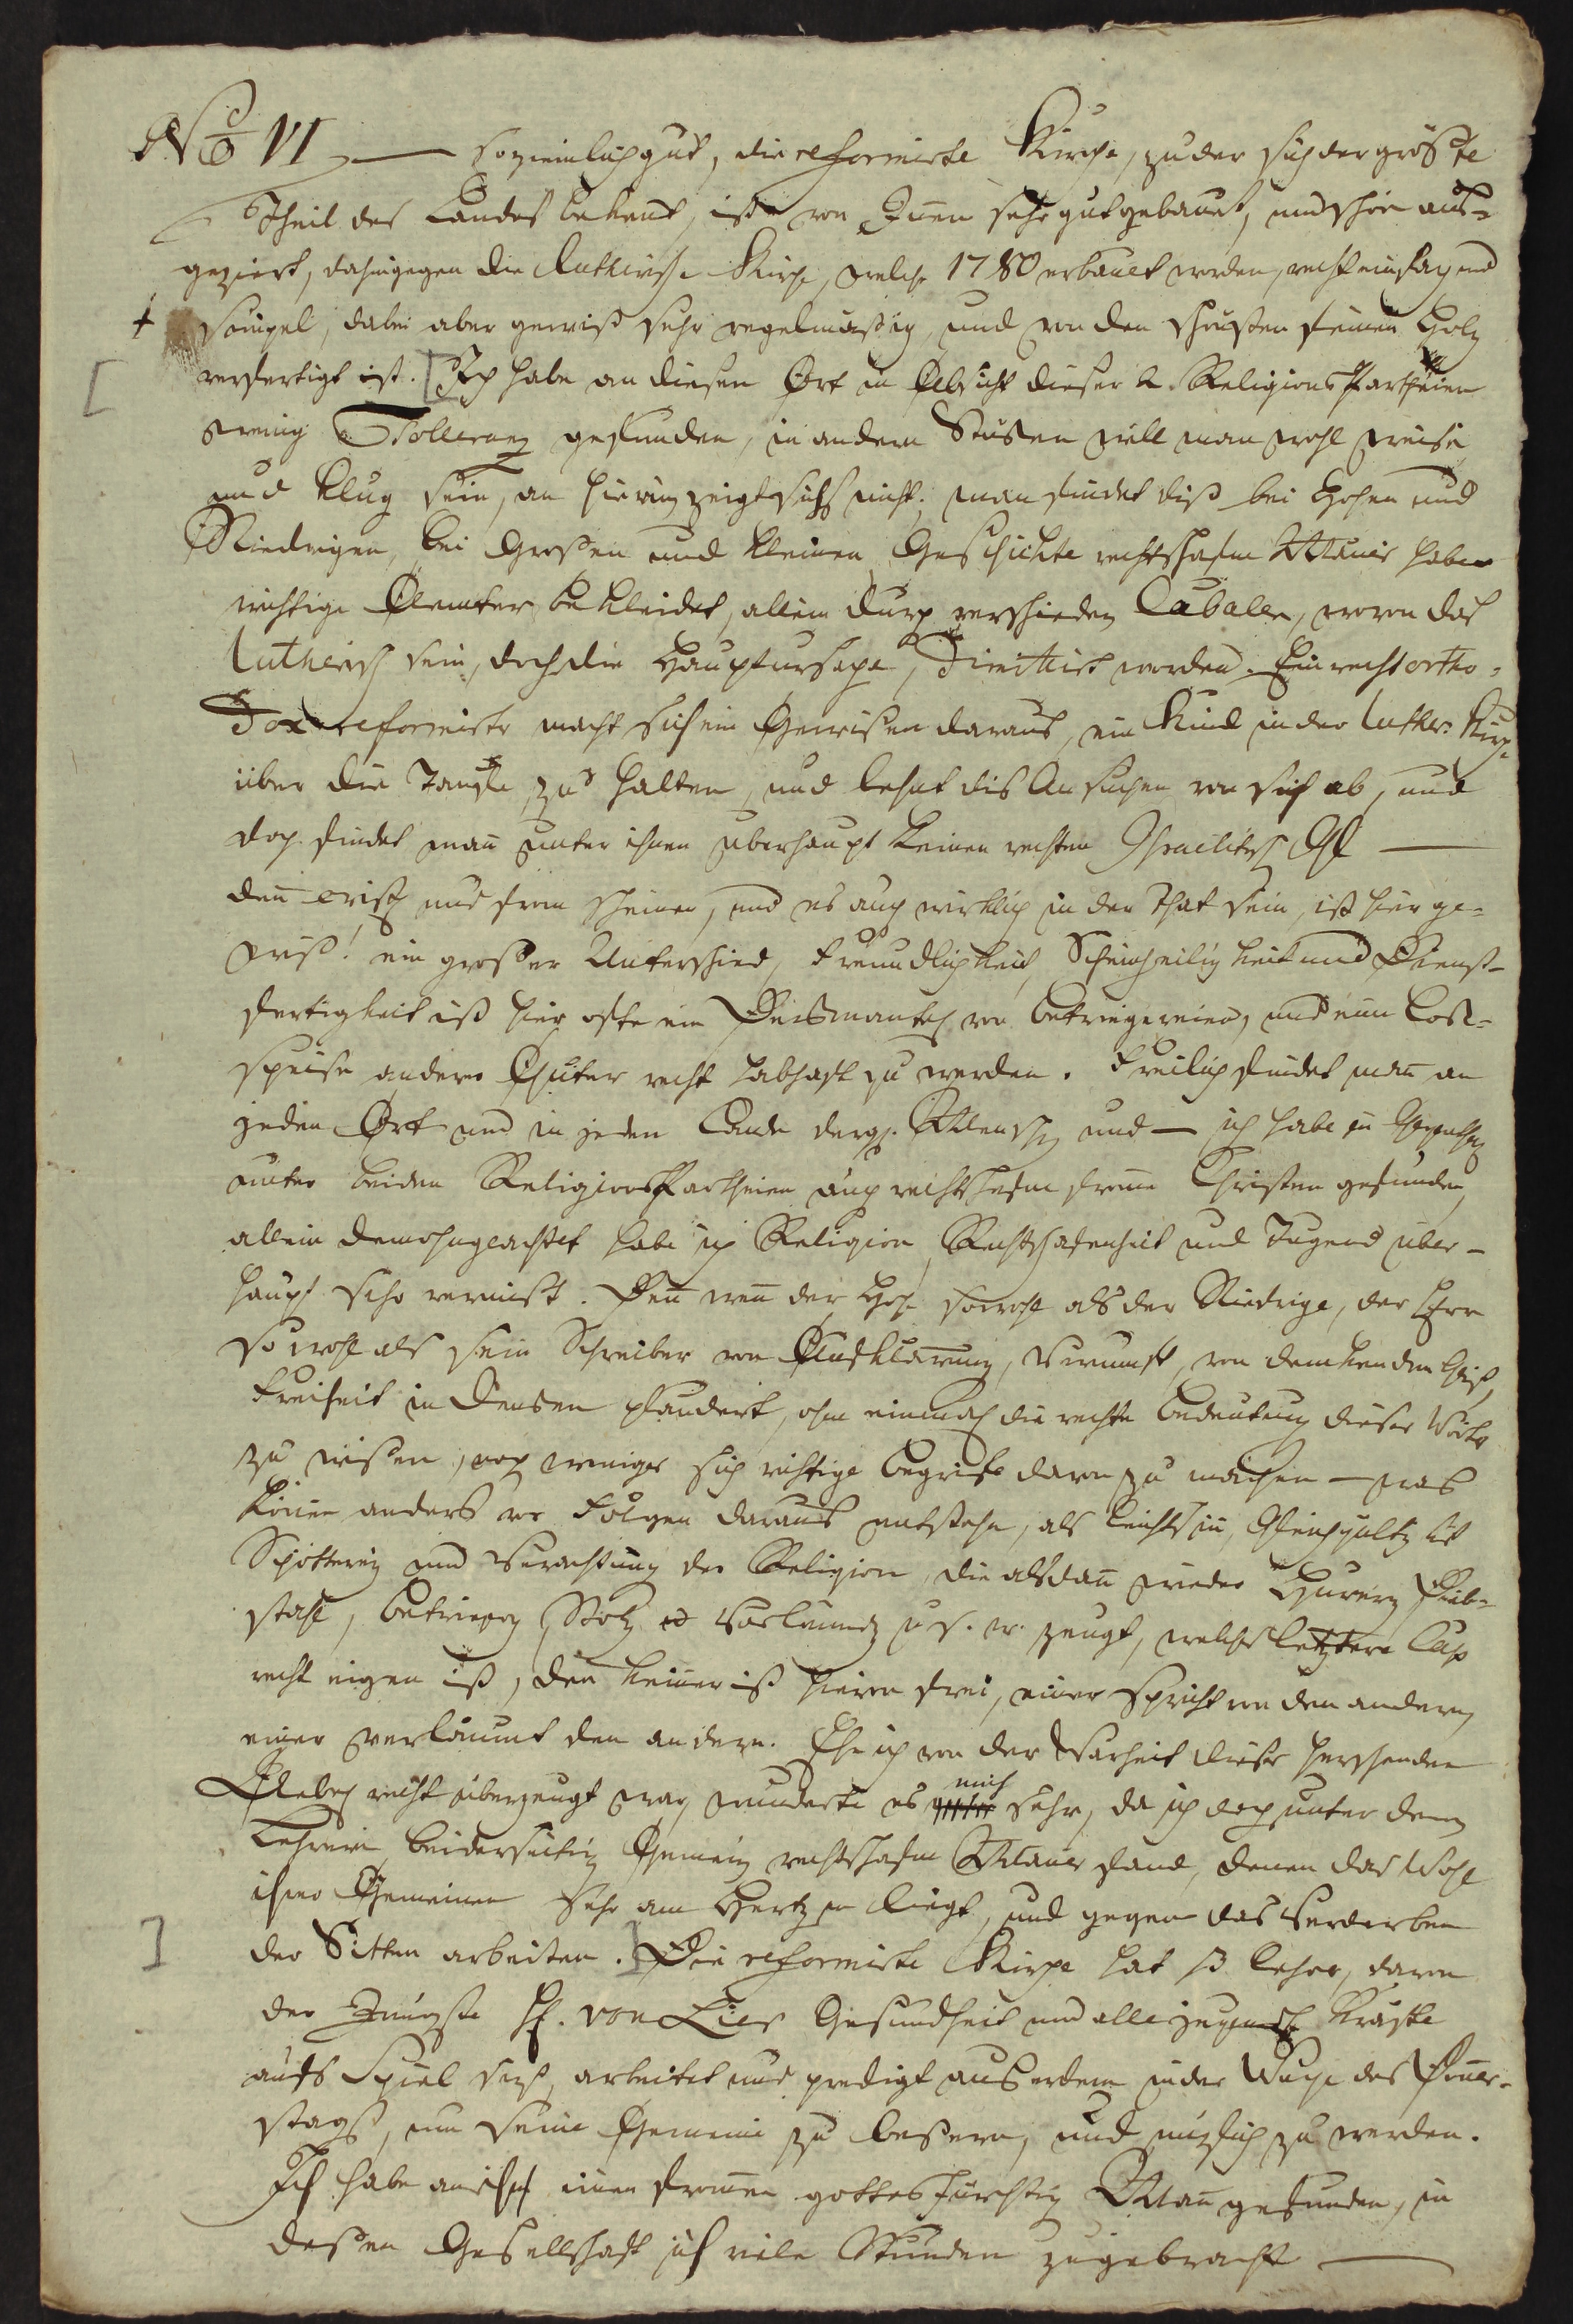 No VI — so zieml︀ich gut, die reformirte Kirche, zu der sich der gröste
Theil des Landes bekent, ist von Innen sehr gut gebauet, und schön aus=
geziert, dahingegen die Lutherische Kirche, welche 1780 erbauet worden, recht einfach und
simpel, dabei aber gewiß sehr regelmäsig, und von den schönsten feinen Holz
verfertigt ist. [Ich habe an diesen Ort in Absicht dieser 2 Religions Partheien
wenig Tolleranz gefunden, in andern Stüken will man wohl weise
und klug sein, an hierin zeigt sichs nicht; man findet diß bei Hohen und
Niedrigen, bei Großen und kleinen, Geschickte rechtschafne Mäner haben
wichtige Aemter bekleidet, allein durch verschieden Cabale, wovon das
Lutherisch sein, doch die Hauptursache, Dimitirt worden. Ein recht ortho=
dox reformirter macht sich ein Gewissen daraus, ein Kind in der Luther: Kirche
über die Taufe zu halten, und lehnt dis Ansuchen von sich ab, und
doch findet man unter ihnen überhaupt keinen rechten Israelitsch —
den Crist und from scheinen, und es auch wirklich in der That sein, ist hier ge=
wiß! ein großer Unterschied, Freundlichkeit, Scheinheiligkeit und Dienst=
fertigkeit ist hier ofte ein Dekmantel von betriegereien, und eine Lock=
speise anderer Güter recht habhaft zu werden. Freilich findet man an
jeden Ort und in jeden Lande dergl. Menschen und — ich habe im Gegentheil
unter beiden Religions Partheien auch rechtschafne frome Christen gefunden,
allein demohngeachtet habe ich Religion, Rechtschafenheit und Tugend über=
haupt sehr vermist. Den wen der Hohe sowohl als der Niedrige, der Herr
sowohl als sein Schreiber von Aufklärung, Vernunft, von denkenden Geist,
Freiheit in Denken plaudert, ohne einmahl die rechte bedeutung dieser Worte
zu wißen, noch weniger sich richtige begriffe davon zu machen — was
könen anders vor Folgen daraus entstehn, als leichtsin, Gleichgültigkeit
Spötterey und Verachtung der Religion, die alsdan wieder Hurerey, Dieb=
stahl, betriegerey, Stolz Verläumdg u.s.w. zeugt, welches letztere Cap
recht eigen ist, den keiner ist hievon frei, einer spricht von den andern,
einer verläumt den andern. Ehe ich von der Warheit dieses herschenden
Uebels recht überzeugt war, wunderte es mich sehr, da ich doch unter denen
Lehrern beiderseitig Gemein rechtschafne Mäner fand, denen das Wohl
ihrer Gemeinen sehr am Hertzen liegt, und gegen das Verderben
der Sitten arbeiten.] Die reformirte Kirche hat 3 Lehrer, davon
der Jüngste H. von Lier Gesundheit und alle Kräfte
aufs Spiel setzt, arbeitet und predigt auserdem in der Woche des Doner=
stags, um seine Gemeine zu beßern, und nüzlich zu werden.
Ich habe an ihm einen fromen gottesfürchtig Man gefunden, in
deßen Gesellschaft ich viele Stunden zugebracht —